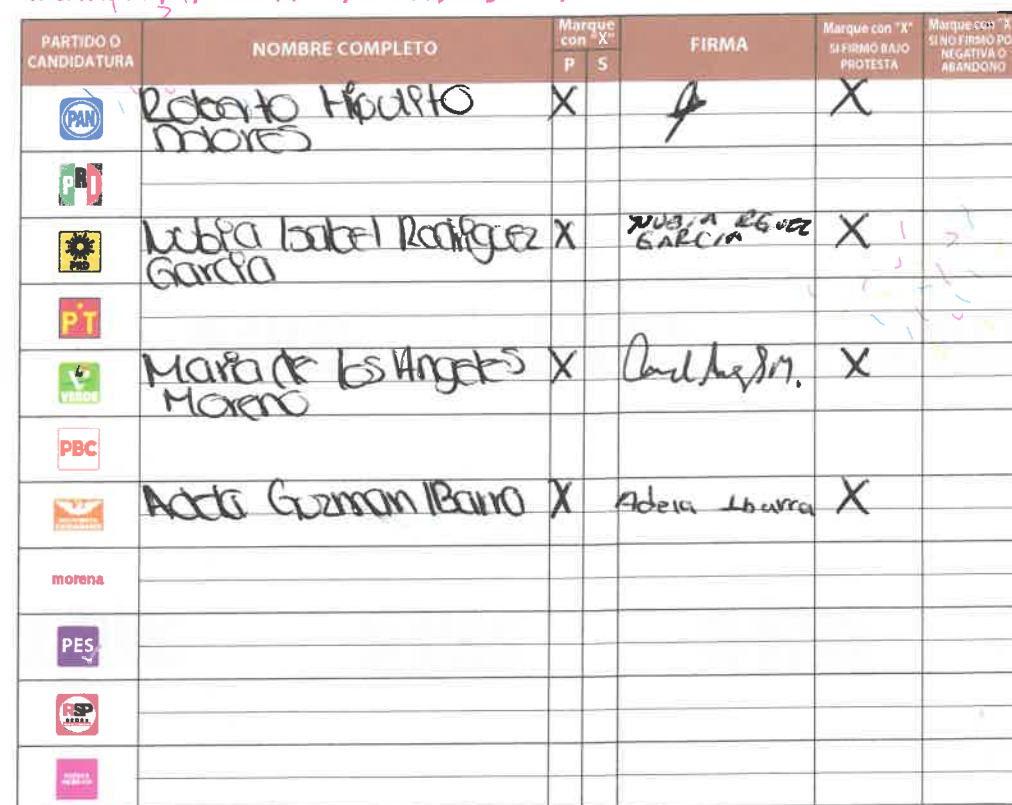 PARTIDO O CANDIDATURA
NOMBRE COMPLETO
Marque con "X"
P S
FIRMA
Marque con "X"
SI FIRMÓ BAJO
PROTESTA
Marque con "X"
SI NO FIRMÓ PO
NEGATIVA O
ABANDONO
PAN
Roberto Hipolito X X
PRI
PRD
Nubia Isabel Rodriguez X NUBIA RGUEZ X
Garcia GARCIA
PT
VERDE
Maria de los Angeles X X
Moreno
PBC
Adela Guzman IBarra X Adela Ibarra X
morena
PES
RSP